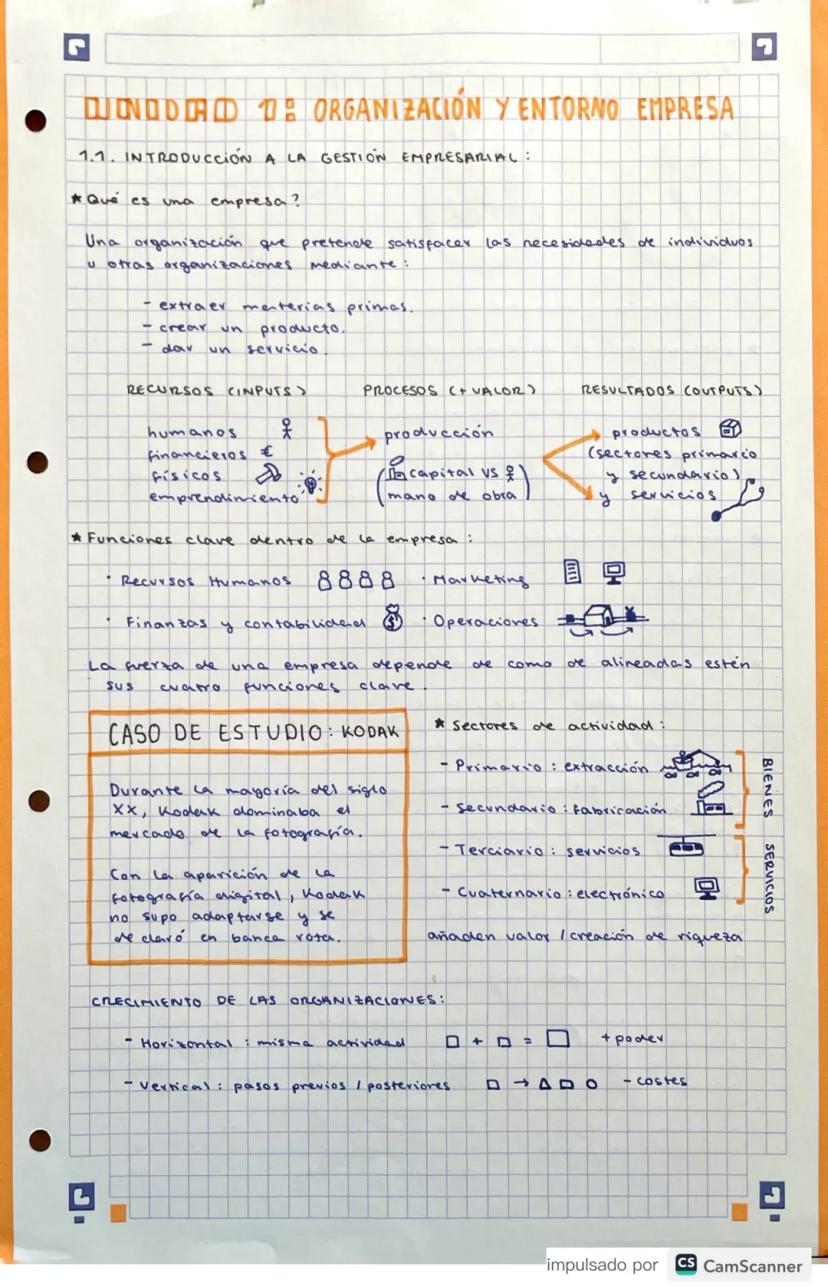 UNIDAD 1: ORGANIZACIÓN Y ENTORNO EMPRESA
1.1. INTRODUCCIÓN A LA GESTIÓN EMPRESARIAL:
* Qué es una empresa?
Una organización que pretende satisfacer las necesidades de individuos
u otras organizaciones mediante:
- extraer materias primas.
- crear un producto.
- dar un servicio.
RECURSOS (INPUTS)
humanos
financieros €
físicos
emprendimiento
PROCESOS (+ VALOR)
producción
(capital vs
mano de obra)
RESULTADOS (OUTPUTS)
productos
(sectores primario
y secundario)
y servicios
* Funciones clave dentro de la empresa:
· Recursos Humanos
· Marketing
· Finanzas y contabilidad
$
· Operaciones
La fuerza de una empresa depende de como de alineadas estén
sus cuatro funciones clave.
CASO DE ESTUDIO: KODAK
Durante la mayoría del siglo
XX, Kodak dominaba el
mercado de la fotografía.
Con la aparición de la
fotografía digital, Kodak
no supo adaptarse y se
declaró en banca rota.
* Sectores de actividad:
- Primario: extracción
- Secundario: fabricación
BIENES
- Terciario: servicios
- Cuaternario: electrónico
SERVICIOS
añaden valor / creación de riqueza
CRECIMIENTO DE LAS ORGANIZACIONES:
- Horizontal: misma actividad □ + □ = □ + poder
- Vertical: pasos previos / posteriores □ → △ □ ○ - costes
impulsado por CS CamScanner